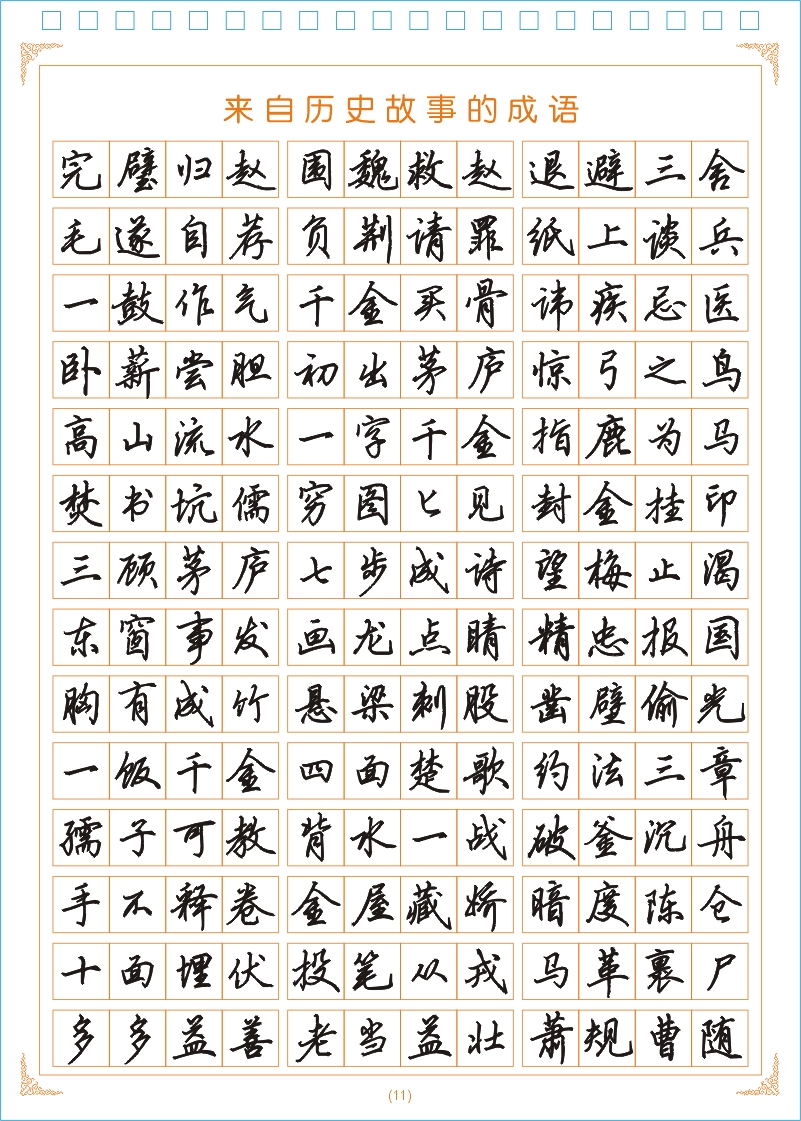 来自历史故事的成语
完璧归赵 围魏救赵 退避三舍
毛遂自荐 负荆请罪 纸上谈兵
一鼓作气 千金买骨 讳疾忌医
卧薪尝胆 初出茅庐 惊弓之鸟
高山流水 一字千金 指鹿为马
焚书坑儒 穷图匕见 封金挂印
三顾茅庐 七步成诗 望梅止渴
东窗事发 画龙点睛 精忠报国
胸有成竹 悬梁刺股 凿壁偷光
一饭千金 四面楚歌 约法三章
孺子可教 背水一战 破釜沉舟
手不释卷 金屋藏娇 暗度陈仓
十面埋伏 投笔从戎 马革裹尸
多多益善 老当益壮 萧规曹随
(11)